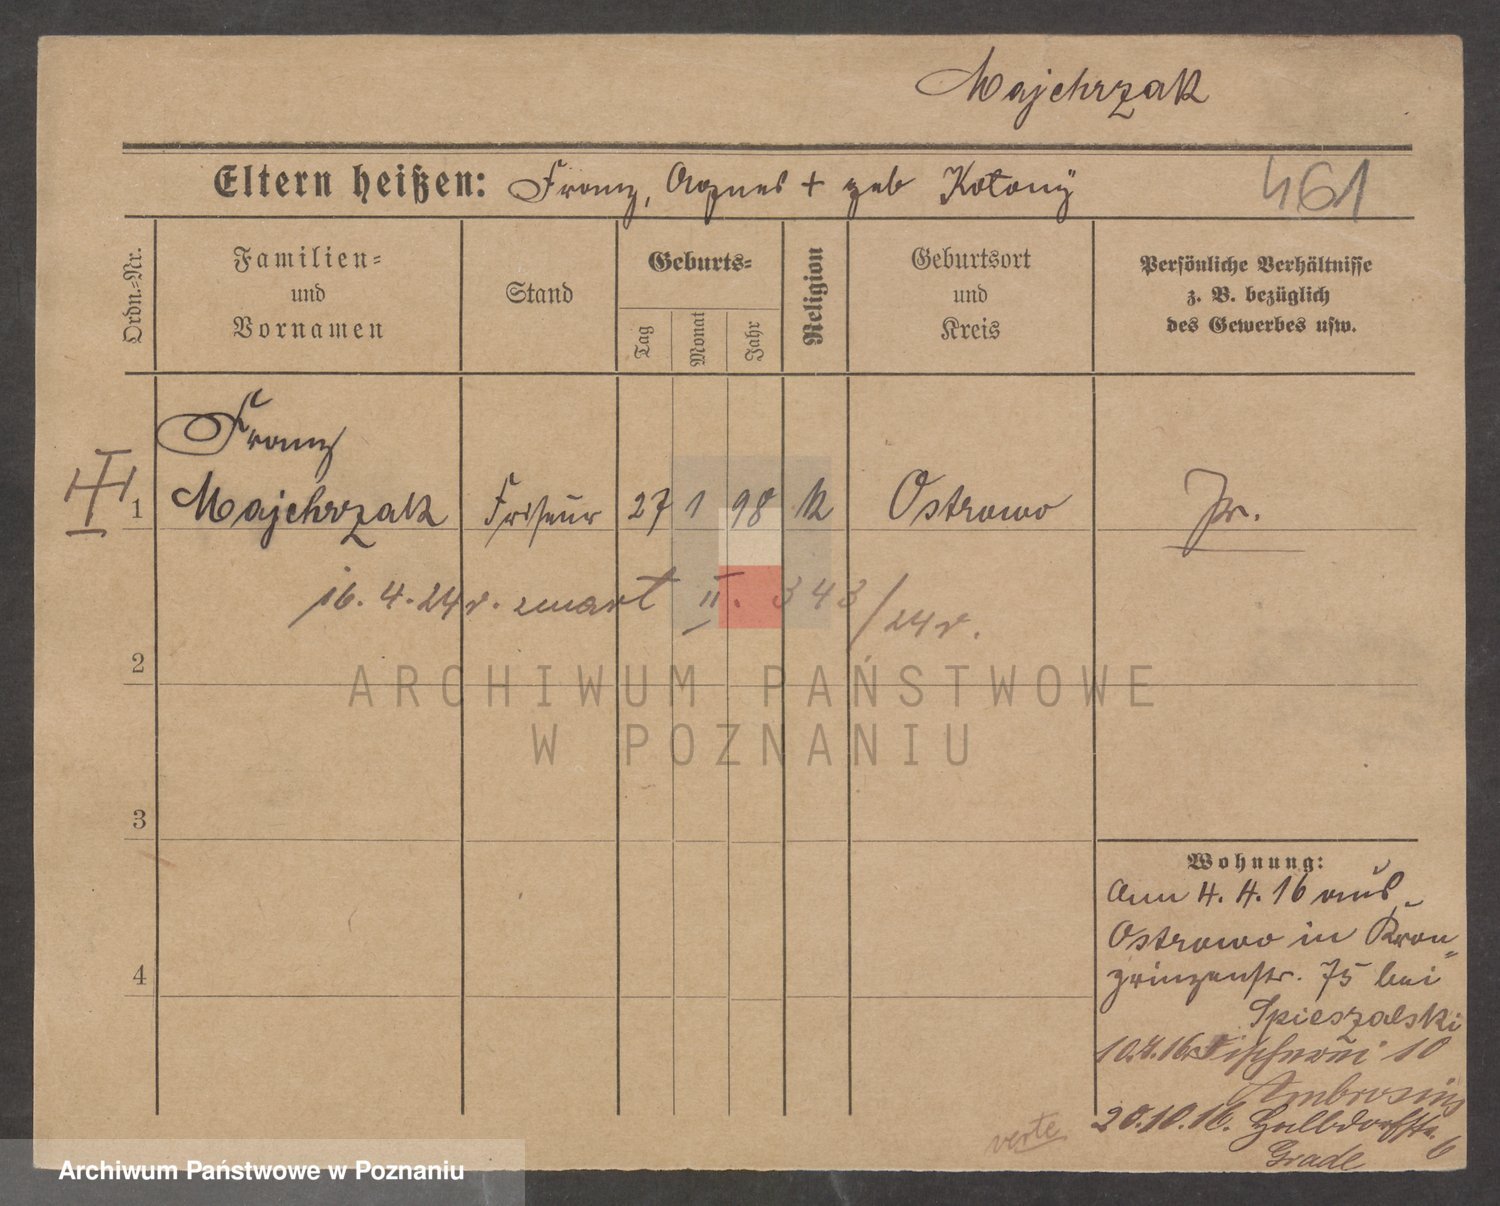 Majchrzak
Eltern heißen: Franz, Agnes + geb Kotony
461
Ordn.-Nr.
Familien-
und
Vornamen
Stand
Geburts-
Tag
Monat
Jahr
Religion
Geburtsort
und
Kreis
Persönliche Verhältnisse
z. B. bezüglich
des Gewerbes usw.
Franz
1 Majchrzak Friseur 27 1 98 K Ostrowo Pr.
16.4.24 r. zmarł II. 343/24 r.
2
ARCHIWUM PAŃSTWOWE
W POZNANIU
3
4
Wohnung:
Am 4. 4. 16 aus
Ostrowo in Kron
prinzenstr. 75 bei
Spieszalski
10.4.16 Fischerei 10
Ambrosius
20.10.16. Halbdorfstr. 6
Grade
verte
Archiwum Państwowe w Poznaniu